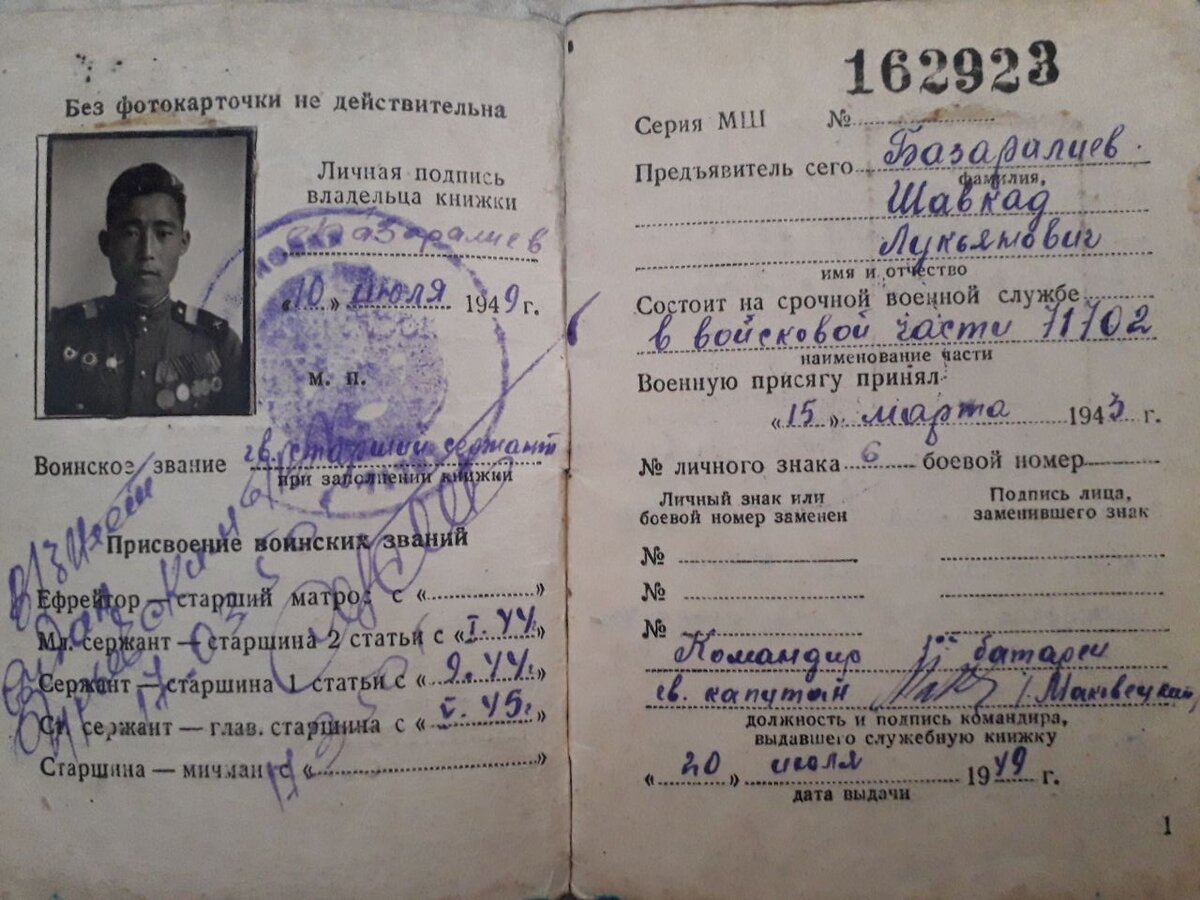 Без фотокарточки не действительна
Личная подпись
владельца книжки
Базаралиев
«10» июля 1949 г.
М. П.
Воинское звание гв. старший сержант
при заполнении книжки
Присвоение воинских званий
Ефрейтор — старший матрос с «»
Мл. сержант — старшина 2 статьи с «I. 44.»
Сержант — старшина 1 статьи с «9. 44г.»
Ст. сержант — глав. старшина с «V. 45г.»
Старшина — мичман с «»
162923
Серия МШ №
Предъявитель сего Базаралиев.
фамилия,
Шавкад
Лукьянович
имя и отчество
Состоит на срочной военной службе
в войсковой части 71702
наименование части
Военную присягу принял
«15» марта 1943 г.
№ личного знака 6 боевой номер
Личный знак или
боевой номер заменен
Подпись лица,
заменившего знак
№
№
№
Командир батареи
гв. капитан /Маковецкий/
должность и подпись командира,
выдавшего служебную книжку
«20» июля 1949 г.
дата выдачи
1